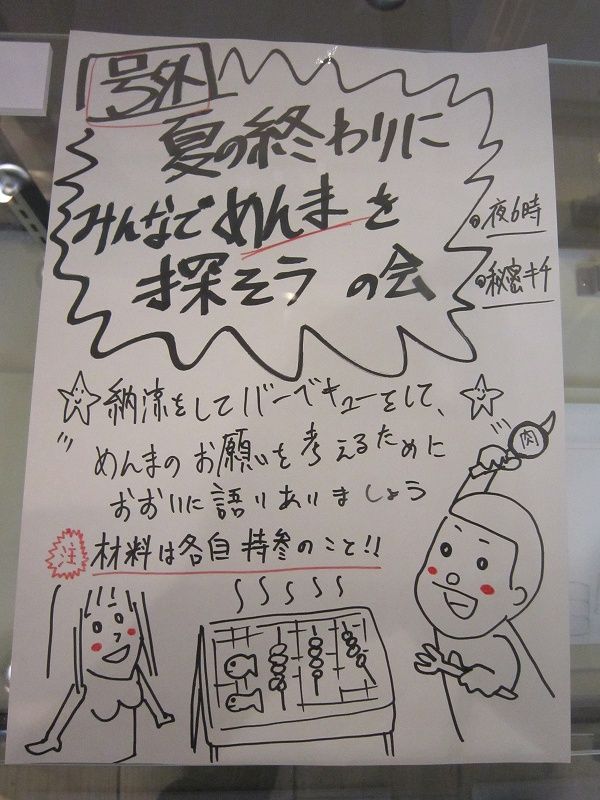 号外
夏の終わりに
みんなでめんまを
探そうの会
夜6時
秘密キチ
納涼をしてバーベキューをして、
めんまのお願いを考えるために
おおいに語りありましょう
注 材料は各自持参のこと!!
肉